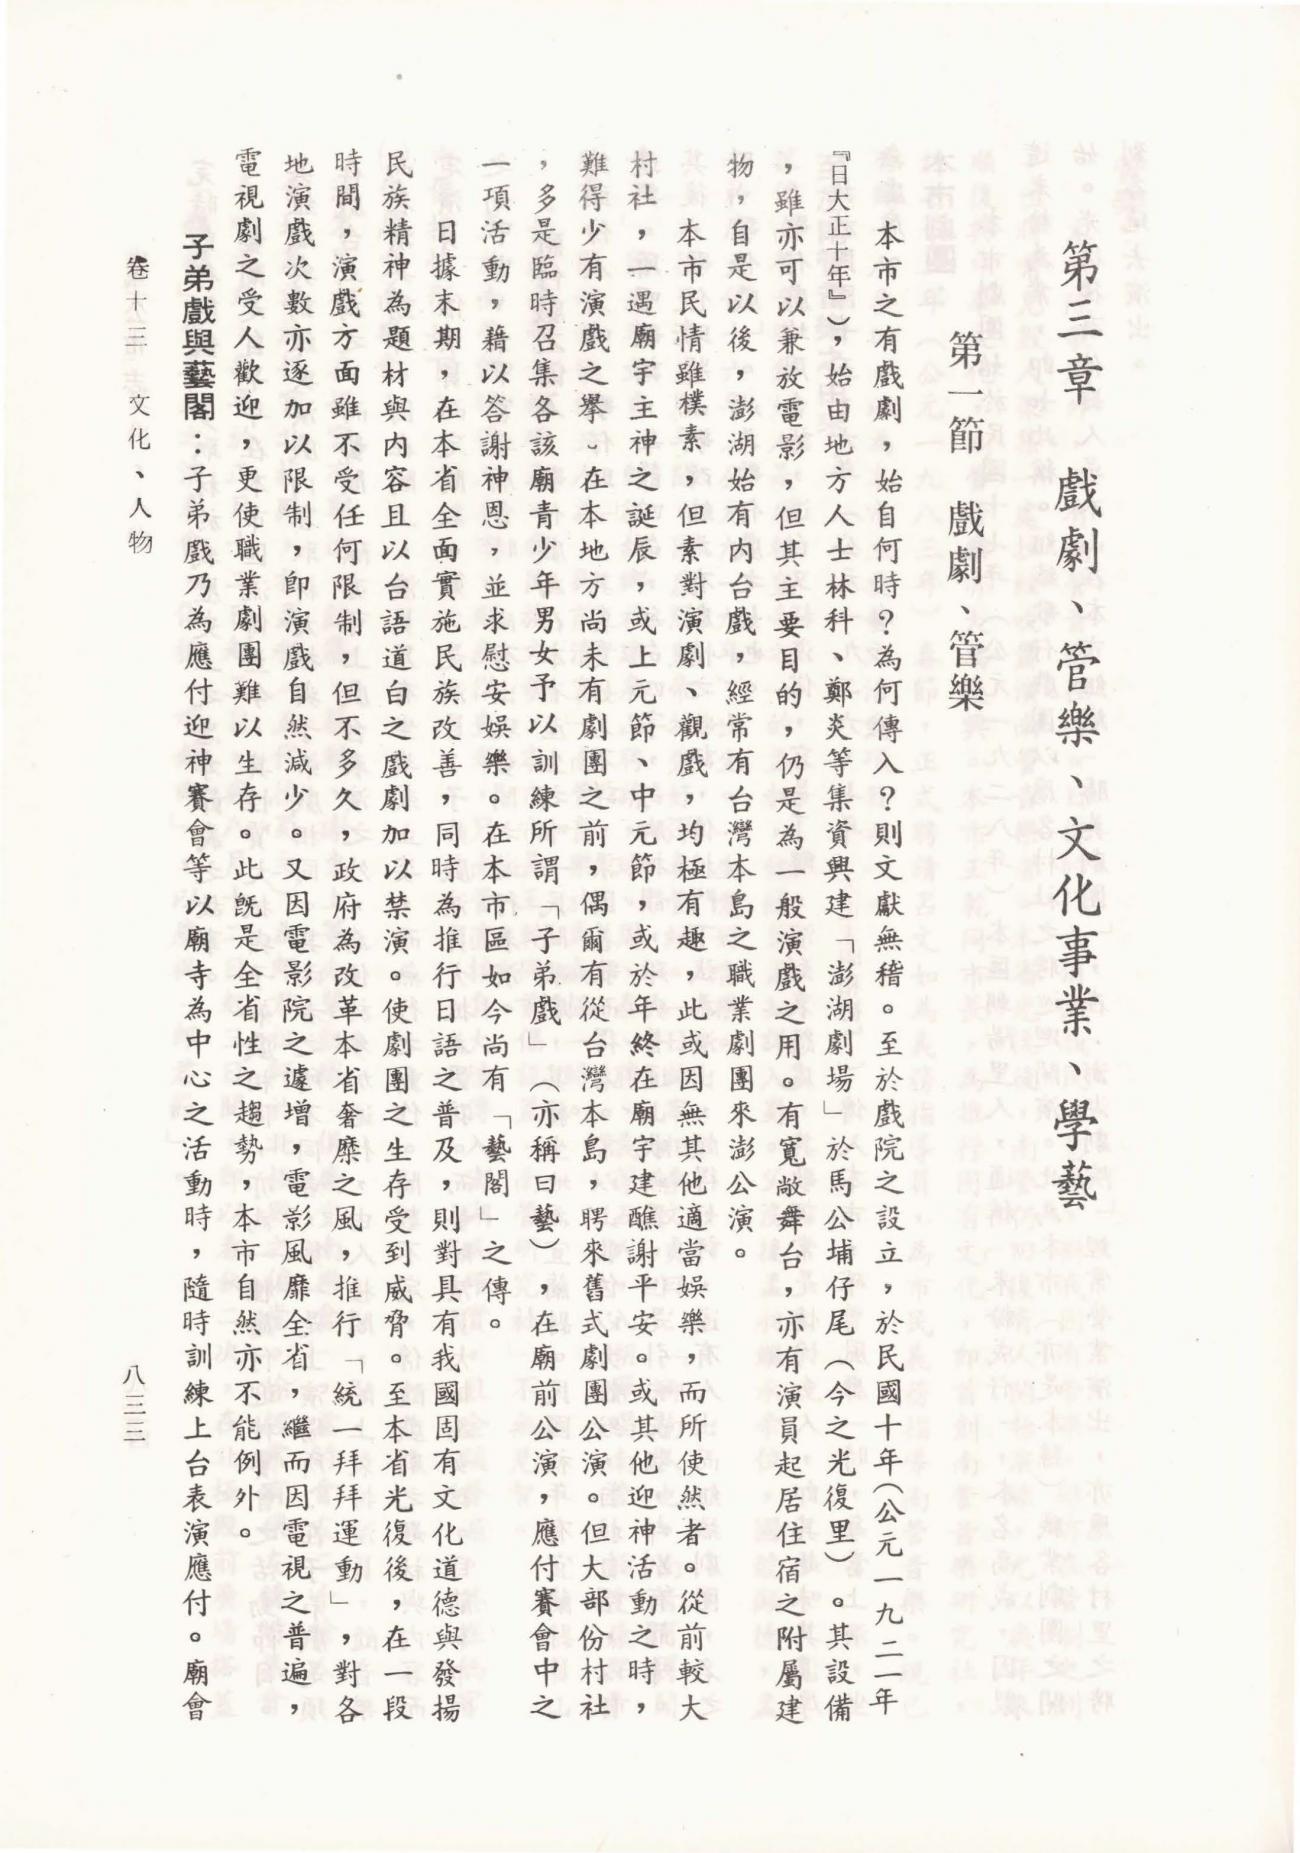 第三章　戲劇、管樂、文化事業、學藝
第一節　戲劇、管樂
本市之有戲劇，始自何時？為何傳入？則文獻無稽。至於戲院之設立，於民國十年（公元一九二一年
『日大正十年』），始由地方人士林科、鄭炎等集資興建「澎湖劇場」於馬公埔仔尾（今之光復里）。其設備
，雖亦可以兼放電影，但其主要目的，仍是為一般演戲之用。有寬敞舞台，亦有演員起居住宿之附屬建
物，自是以後，澎湖始有内台戲，經常有台灣本島之職業劇團來澎公演。
本市民情雖樸素，但素對演劇、觀戲，均極有趣，此或因無其他適當娛樂，而所使然者。從前較大
村社，一遇廟宇主神之誕辰，或上元節、中元節，或於年終在廟宇建醮謝平安。或其他迎神活動之時，
難得少有演戲之舉。在本地方尚未有劇團之前，偶爾有從台灣本島，聘來舊式劇團公演。但大部份村社
，多是臨時召集各該廟青少年男女予以訓練所謂「子弟戲」（亦稱曰藝），在廟前公演，應付賽會中之
一項活動，藉以答謝神恩，並求慰安娛樂。在本市區如今尚有「藝閣」之傳。
日據末期，在本省全面實施民族改善，同時為推行日語之普及，則對具有我國固有文化道德與發揚
民族精神為題材與内容且以台語道白之戲劇加以禁演。使劇團之生存受到威脅。至本省光復後，在一段
時間，演戲方面雖不受任何限制，但不多久，政府為改革本省奢糜之風，推行「統一拜拜運動」，對各
地演戲次數亦逐加以限制，卽演戲自然減少。又因電影院之遽增，電影風靡全省，繼而因電視之普遍，
電視劇之受人歡迎，更使職業劇團難以生存。此旣是全省性之趨勢，本市自然亦不能例外。
子弟戲與藝閣：子弟戲乃為應付迎神賽會等以廟寺為中心之活動時，隨時訓練上台表演應付。廟會
卷十三　文化、人物
八三三